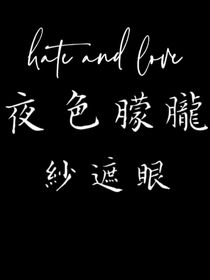 hate and love
夜色朦朧
紗遮眼